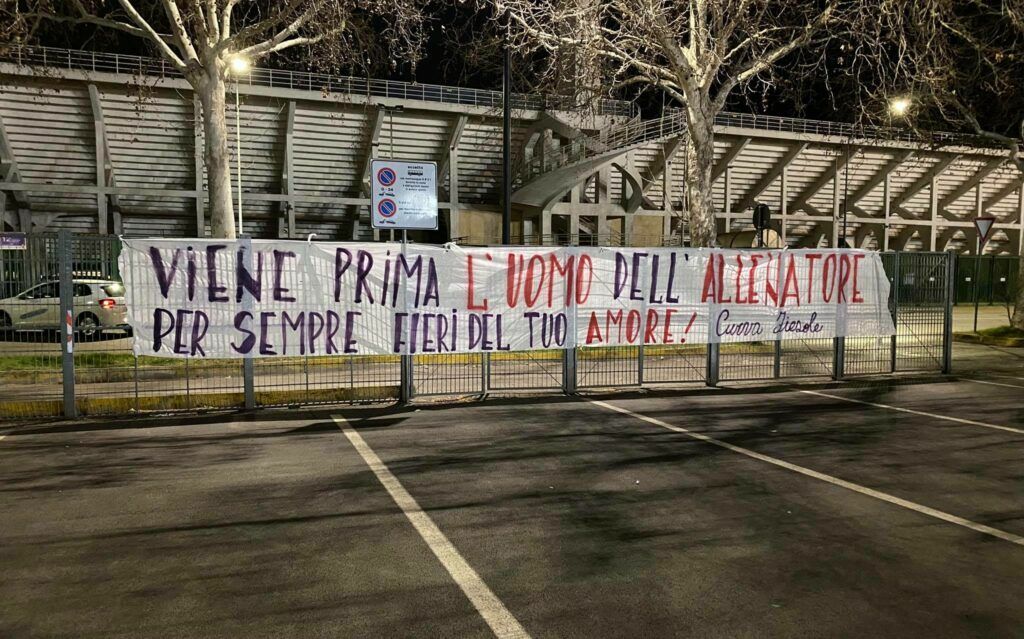 VIENE PRIMA L'UOMO DELL'ALLENATORE
PER SEMPRE FIERI DEL TUO AMORE! Curva Fiesole
0-24